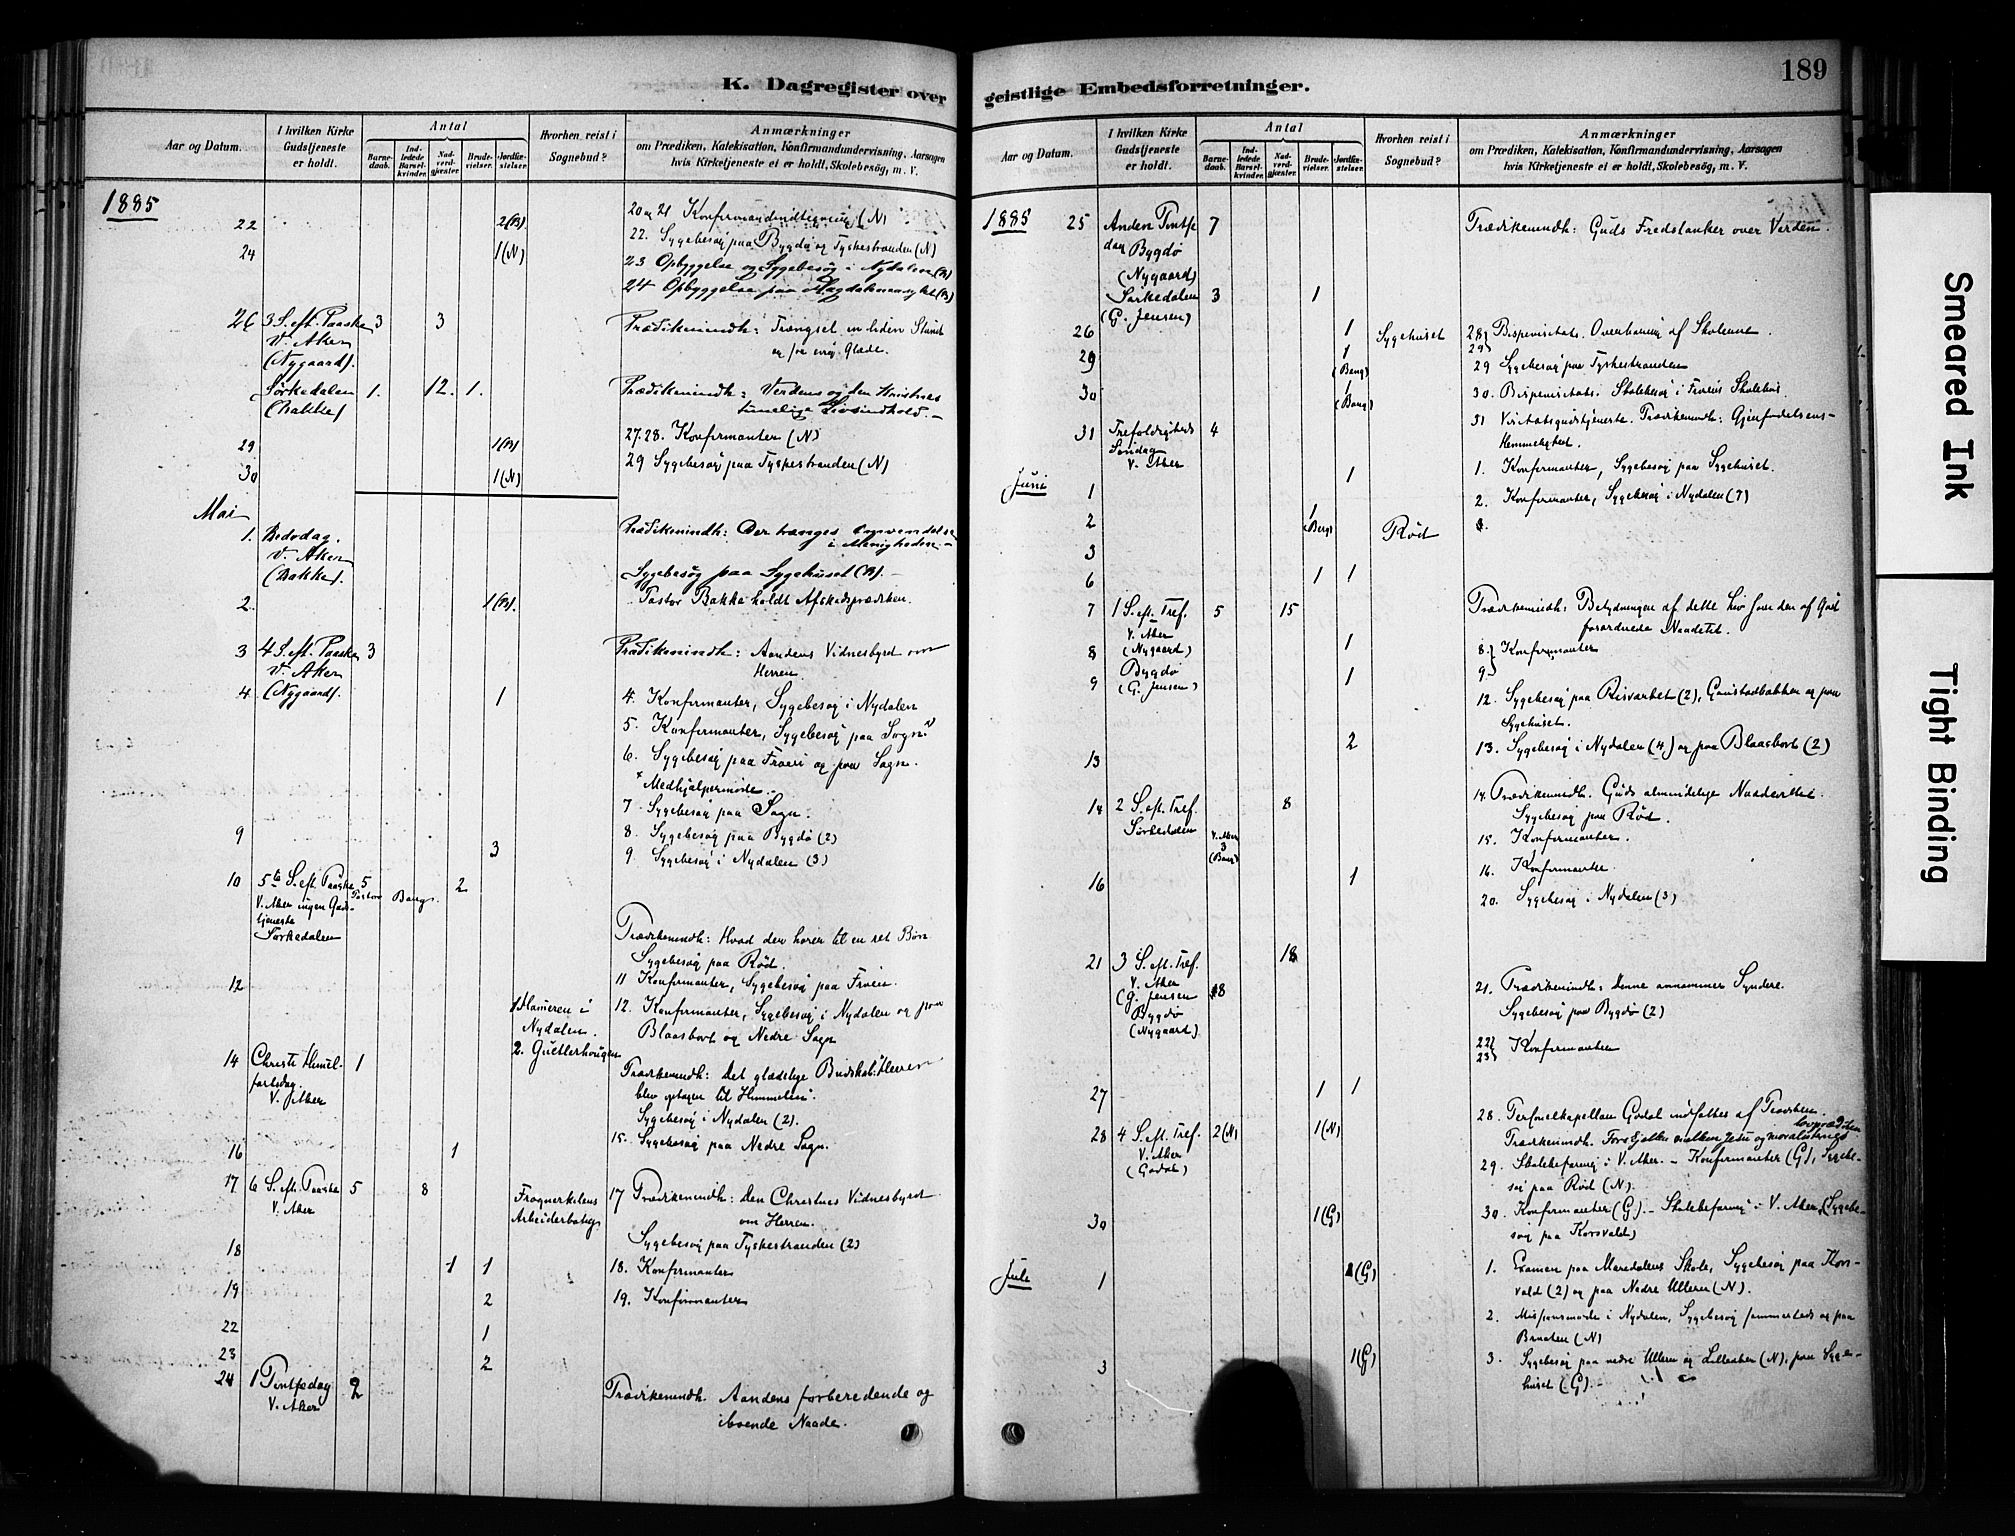 K. Dagregister over
Aar og Datum.
I hvilken Kirke Gudstjeneste er holdt.
Antal
Barnedaab.
Indledede Barselkvinder.
Nadverdgjæster.
Brudevielser.
Jordfæstelser.
Hvorhen reist i Sognebud?
Anmærkninger
om Prædiken, Katekisation, Konfirmandundervisning, Aarsagen
hvis Kirketjeneste ei er holdt, Skolebesøg, m. V.
1885
22 2(B) 20 og 21 (N)
22. Sygebesøg paa Bygdø og Tyskestranden (N)
24 1(N)
23 Opbyggelse og Sygebesøg i Nydalen (B)
24 Opbyggelse paa
26 3 S. eft. Paaske 3 3 Prædikenindh: Trængsel en liden Stund
V. Aker og for evig Glæde.
(Nygaard).
Sørkedalen 1. 12. 1. Prædikenindh: Verdens og den Kristnes
(Bakke) Livsindhold. –
27. 28. Konfirmanter (N)
29 1(B)
29 Sygebesøg paa Tyskestranden (N)
30 1(N)
Mai
1. Bededag. Prædikenindh: Der trænges Omvendelse
V. Aker i Menigheden. –
(Bakke). Sygebesøg paa Sygehuset (B). –
2. 1(B). Pastor Bakke holdt Afskedsprædiken.
3 4 S. eft. Paaske 3 Prædikenindh: Aandens Vidnesbyrd om
V. Aker Herren.
4. (Nygaard). 1 4. Konfirmanter, Sygebesøg i Nydalen
5. Konfirmanter, Sygebesøg paa Sogn
6. Sygebesøg paa Frøen og paa Sogn.
Medhjælpermøde.
7 Sygebesøg paa Sogn.
8. Sygebesøg paa Bygdø (2)
9 3
9. Sygebesøg i Nydalen (3)
10 5te S. eft. Paaske 5 2
V. Aker ingen Gudstjeneste Pastor Bang.
Sørkedalen
Prædikenindh: Hvad der hører til en ret Bøn
Sygebesøg paa Rød.
11 Konfirmanter, Sygebesøg paa Frøen.
12 1 Hameren i Nydalen. 12. Konfirmanter, Sygebesøg i Nydalen og paa
Blaasbort og Nedre Sogn
2.
14 Christi Himmelfartsdag. 1 Prædikenindh: Det glædelige Budskab: Herren
V. Aker blev optagen til Himmelen.
Sygebesøg i Nydalen (2).
15. Sygebesøg paa Nedre Sogn.
16 1
17 6 S. eft. Paaske 5 8 Frognerkilens Arbeiderbolig 17 Prædikenindh: Den Christnes Vidnesbyrd
V. Aker om Herren.
Sygebesøg paa Tyskestranden (2)
18 1 1 18. Konfirmanter
19 2 19. Konfirmanter
22 1
23 2
24 1 Pintsedag 2 Prædikenindh. Aandens forberedende og
V. Aker iboende Naade.
geistlige Embedsforretninger.
189
Aar og Datum.
I hvilken Kirke Gudstjeneste er holdt.
Antal
Barnedaab.
Indledede Barselkvinder.
Nadverdgjæster.
Brudevielser.
Jordfæstelser.
Hvorhen reist i Sognebud?
Anmærkninger
om Prædiken, Katekisation, Konfirmandundervisning, Aarsagen
hvis Kirketjeneste ei er holdt, Skolebesøg, m. V.
1885
25 Anden Pintsedag 7 Prædikenindh: Guds Fredstanker over Verden.
Bygdø
(Nygaard)
Sørkedalen 3 1
(G. Jensen)
26 1 Sygehuset 28 29 Bispevisitats. Overhøring af Skolerne.
29 1 (Bang) 29 Sygebesøg paa Tyskestranden
30 1 (Bang) 30. Bispevisitats. Skolebesøg i Frøens Skolehus
31 Trefoldigheds Søndag 4 31 Visitatsgudstjeneste. Prædikenindh: Gjenfødelsens
V. Aker Hemmelighed.
Juni 1 1 1. Konfirmanter, Sygebesøg paa Sygehuset.
2 1 (Bang) 2. Konfirmanter, Sygebesøg i Nydalen (7)
3 Rød
6 1 1
7 1 S. eft. Tref. 5 15 Prædikenindh: Betydningen af dette Liv som den af Gud
V. Aker forordnede Naadetid.
8 (Nygaard) 1 8. 9 Konfirmanter
9 Bygdø 1
(G. Jensen)
12. Sygebesøg paa (2), Gaustadbakken og paa
Sygehuset.
13 2 13. Sygebesøg i Nydalen (4) og paa Blaasbort (2)
14 2 S. eft. Tref. 8 14. Prædikenindh. Guds almindelige Naadevillie.
Sørkedalen Sygebesøg paa Rød.
V. Aker 3 (Bang) 15. Konfirmanter.
16 1 16. Konfirmanter
20. Sygebesøg i Nydalen (3)
21 3 S. eft. Tref. 18
V. Aker 21. Prædikenindh: Denne annammer Syndere.
(G. Jensen 8
Bygdø Sygebesøg paa Bygdø (2)
(Nygaard)
22 23 Konfirmanter
27 1 1
28. Personelkapellan Godal indsættes af Provsten.
28 4 S. eft. Tref. 2(N) 1(N) Prædikenindh. Forskjellen mellem Jesu og
V. Aker
(Godal) 29. i V. Aker. – Konfirmanter (G), Sygebesøg
paa Rød (N).
30 1(G) 30. Konfirmanter (G). – i V. Aker, (Sygebesøg
paa Korsvold)
Juli 1 1(G) 1. Examen paa Maridalens Skole, Sygebesøg paa Korsvold
(2) og paa Nedre Ullern (N).
2. Missionsmøde i Nydalen, Sygebesøg sammesteds og paa
Braaten (N)
3 1(G) 3. Sygebesøg paa nedre Ullern og Lilleaker (N), paa Sygehuset
(G). –
Smeared Ink
Tight Binding